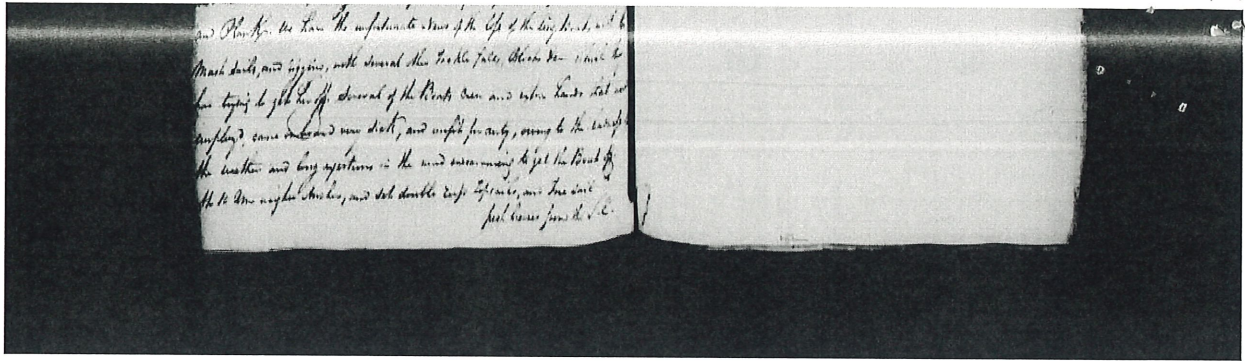 and Plank &c. We have the unfortunate News of the loss of the Long Boat, with her
Mast Sails, and rigging, with several other Tackle falls, Blocks &c.
her trying to get her off. Several of the Boats Crew and other hands that were
employed, came onboard very sick, and unfit for duty, owing to the
the weather and long exertions in the mud endeavouring to get the Boat off
At 10 AM weighed Anchor, and set double reef'd Topsails, and Fore sail
fresh breezes from the S.E.